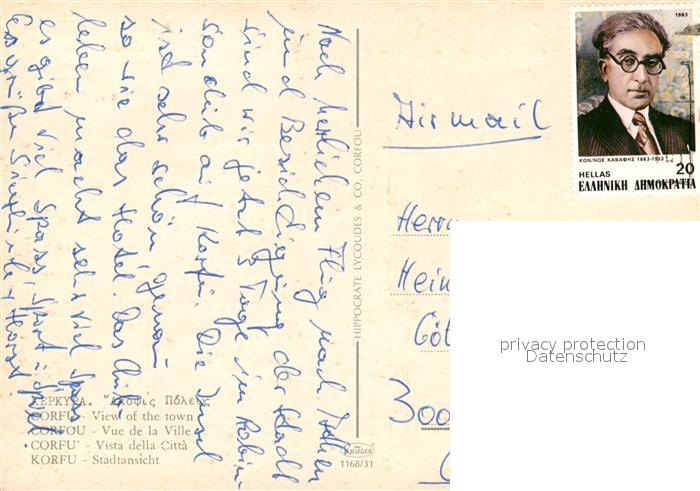 Nach herrlichem Flug nach Athen
und Besichtigung der Stadt
sind wir jetzt 5 Tage im Robin-
son club auf Korfu. Die Insel
ist sehr schön, genau
so wie das Hotel. Das Club-
leben macht sehr viel Spass
es gibt viel Spass, Sport + Spiel.
Es grüßen
ΚΕΡΚΥΡΑ. "Αποψις Πόλεως
CORFU - View of the town
CORFOU - Vue de la Ville
CORFU' - Vista della Città
KORFU - Stadtansicht
HIPPOCRATE LYCOUDES & CO. CORFOU
KRÜGER
1168/31
Airmail
Herrn
Hein
Göt
300
1983
ΚΩΝ/ΝΟΣ ΚΑΒΑΦΗΣ 1863-1933
HELLAS 20
ΕΛΛΗΝΙΚΗ ΔΗΜΟΚΡΑΤΙΑ
privacy protection
Datenschutz